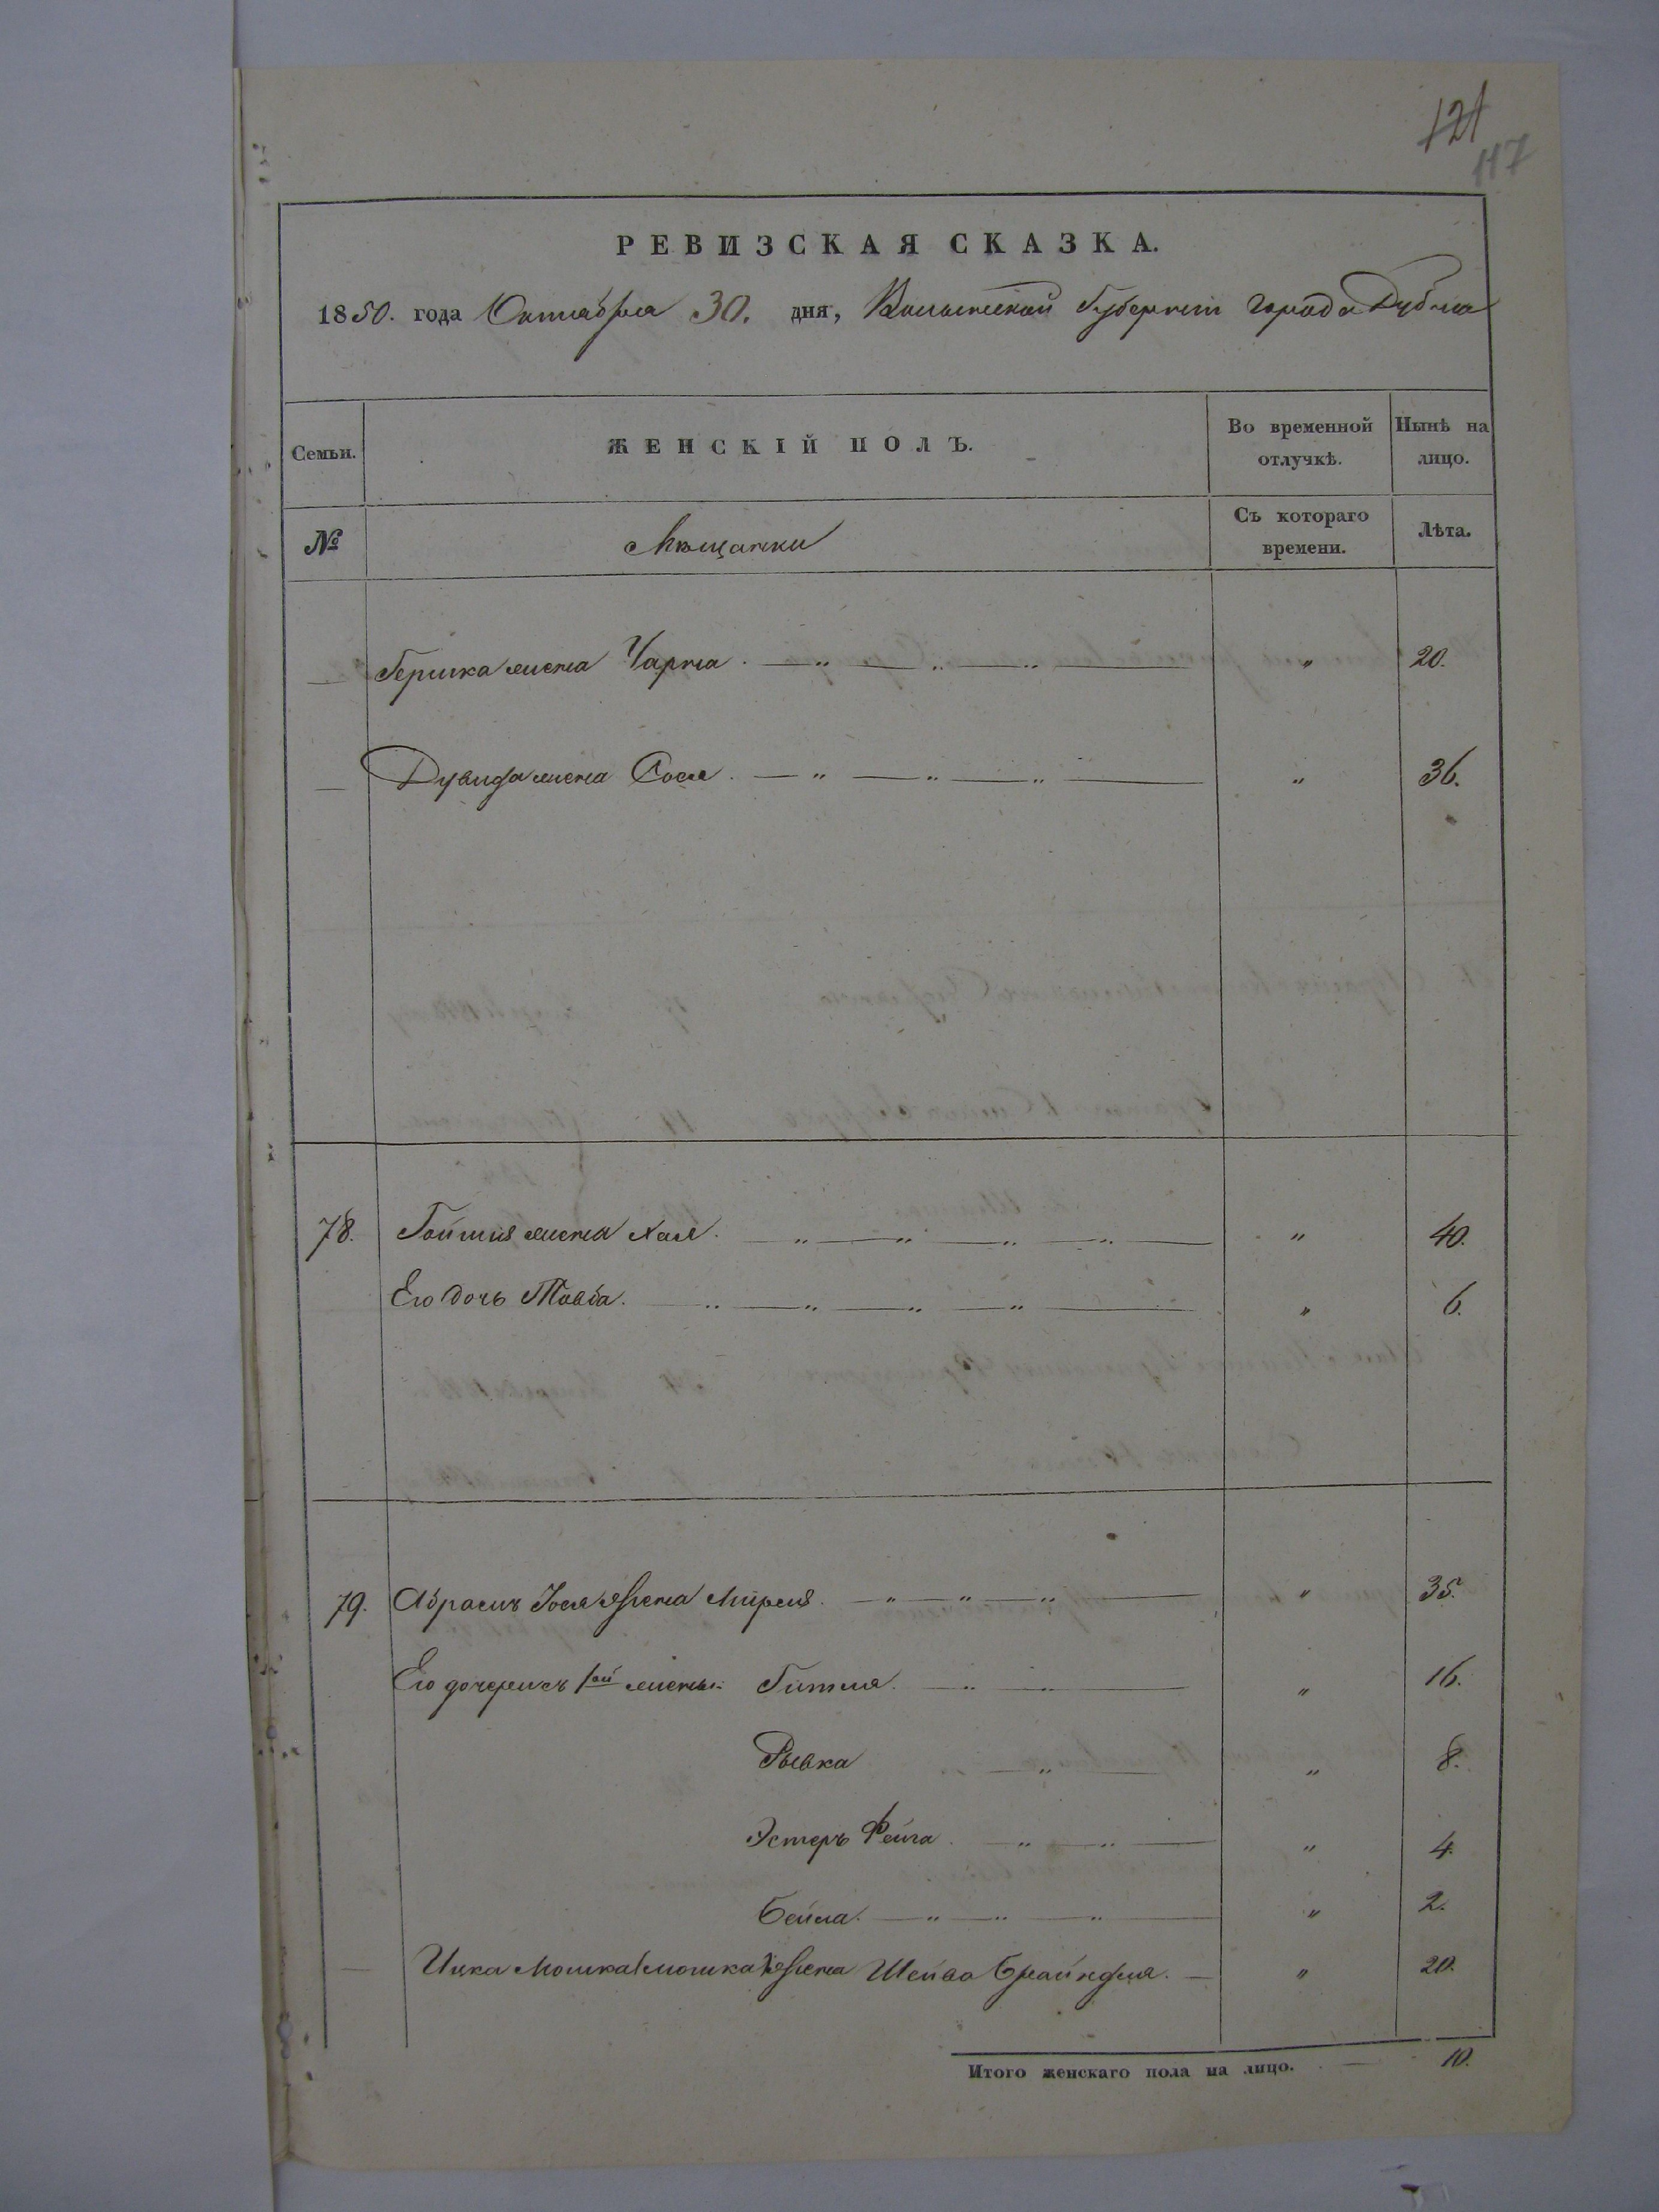 121
117
РЕВИЗСКАЯ СКАЗКА.
1850. года Октября 30. дня, Волынской Губернии города Дубна
Семьи. ЖЕНСКІЙ ПОЛЪ. Во временной отлучкѣ. Нынѣ на лицо.
№ Мѣщанки Съ котораго времени. Лѣта.
— Гершка жена Чарна. — „ — „ — „ — „ 20.
— Дувида жена Сося. — „ — „ — „ — „ 36.
78. жена Хая. — „ — „ — „ — „ — „ 40.
Его дочь Тавба. — „ — „ — „ — „ — „ 6.
79. Абрамъ Іося жена — „ — „ — „ — „ 35.
Его дочери съ 1ой жены: Гитля. — „ — „ — „ 16.
Рывка „ — „ — „ 8.
Эстеръ Фейга. — „ — „ — „ 4.
Бейла. — „ — „ — „ — „ 2.
— Ицка Мошка жена Шейва Брайндля. — „ 20.
Итого женскаго пола на лицо. — 10.